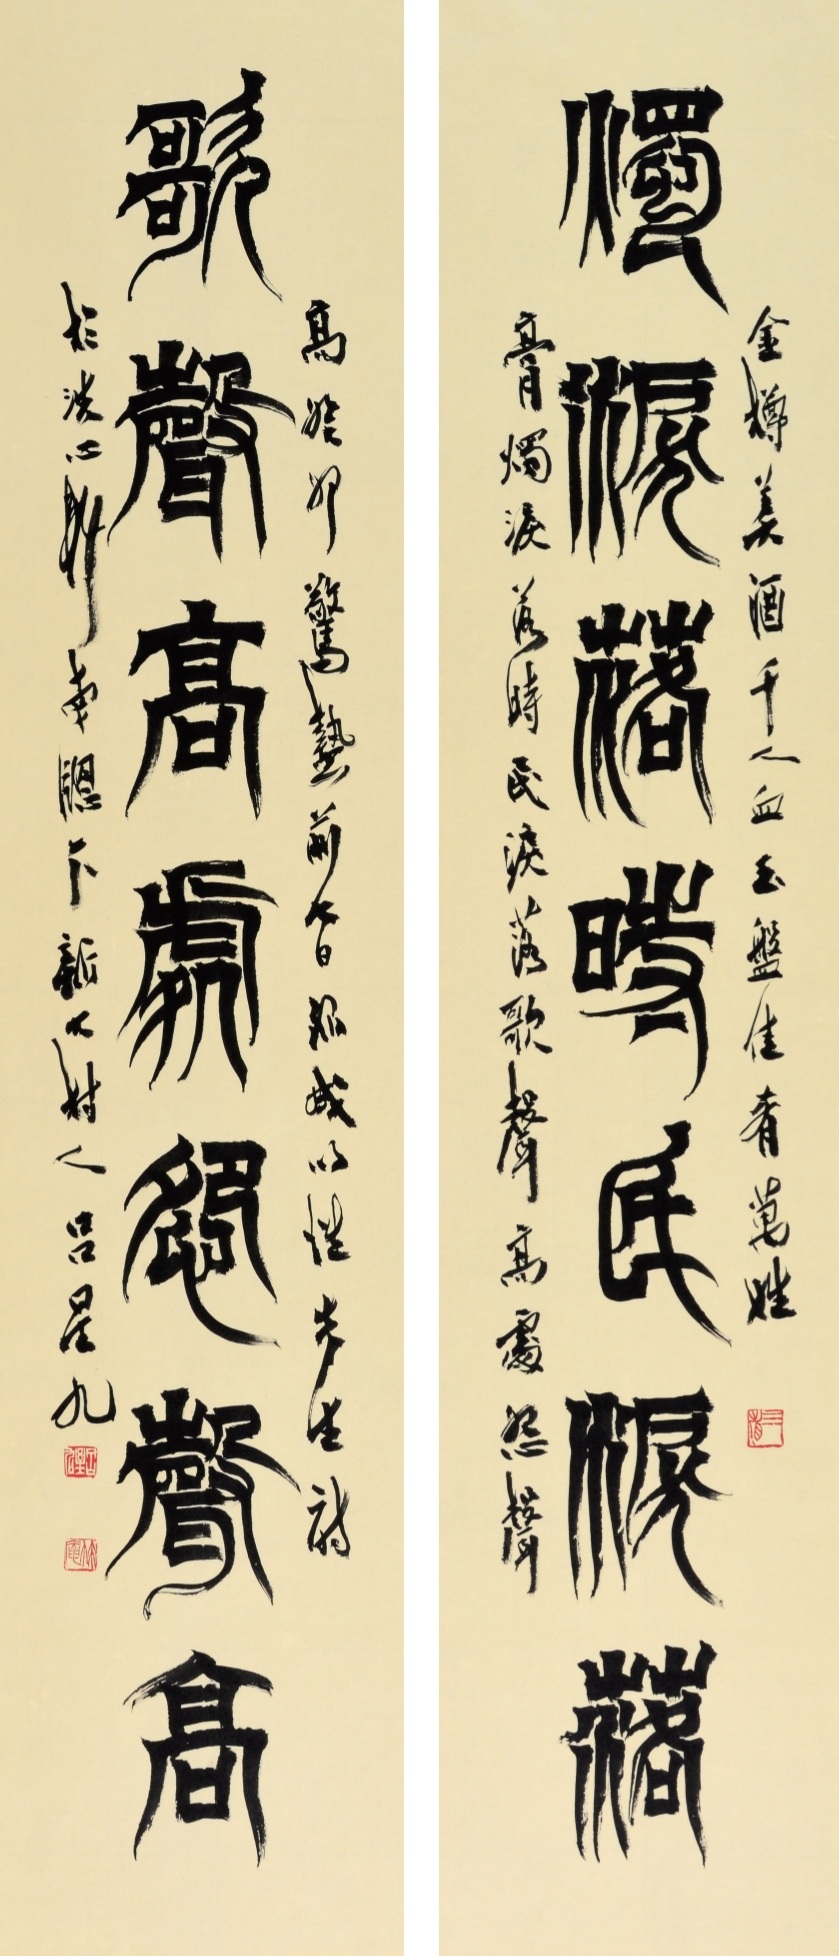 金樽美酒千人血玉盤佳肴萬姓
燭淚落時民淚落
膏燭淚落時民淚落歌聲高處怨聲
高癸卯驚蟄前七日錄成以性先生詩
歌聲高處怨聲高
於淡心軒南牕下新村人呂星九